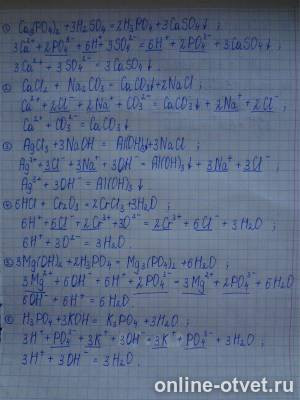 ① Ca3(PO4)2 + 3H2SO4 = 2H3PO4 + 3CaSO4↓ ;
3Ca²⁺ + 2PO4³⁻ + 6H⁺ + 3SO4²⁻ = 6H⁺ + 2PO4³⁻ + 3CaSO4↓ ;
3Ca²⁺ + 3SO4²⁻ = 3CaSO4↓
② CaCl2 + Na2CO3 = CaCO3↓ + 2NaCl ;
Ca²⁺ + 2Cl⁻ + 2Na⁺ + CO3²⁻ = CaCO3↓ + 2Na⁺ + 2Cl⁻ ;
Ca²⁺ + CO3²⁻ = CaCO3↓
③ AgCl3 + 3NaOH = Al(OH)3↓ + 3NaCl ;
Ag³⁺ + 3Cl⁻ + 3Na⁺ + 3OH⁻ = Al(OH)3↓ + 3Na⁺ + 3Cl⁻ ;
Ag³⁺ + 3OH⁻ = Al(OH)3↓
④ 6HCl + Cr2O3 = 2CrCl3 + 3H2O ;
6H⁺ + 6Cl⁻ + 2Cr³⁺ + 3O²⁻ = 2Cr³⁺ + 6Cl⁻ + 3H2O ;
6H⁺ + 3O²⁻ = 3H2O
⑤ 3Mg(OH)2 + 2H3PO4 = Mg3(PO4)2 + 6H2O ;
3Mg²⁺ + 6OH⁻ + 6H⁺ + 2PO4³⁻ = 3Mg²⁺ + 2PO4³⁻ + 6H2O
6OH⁻ + 6H⁺ = 6H2O
⑥ H3PO4 + 3KOH = K3PO4 + 3H2O ;
3H⁺ + PO4³⁻ + 3K⁺ + 3OH⁻ = 3K⁺ + PO4³⁻ + 3H2O ;
3H⁺ + 3OH⁻ = 3H2O
online-otvet.ru